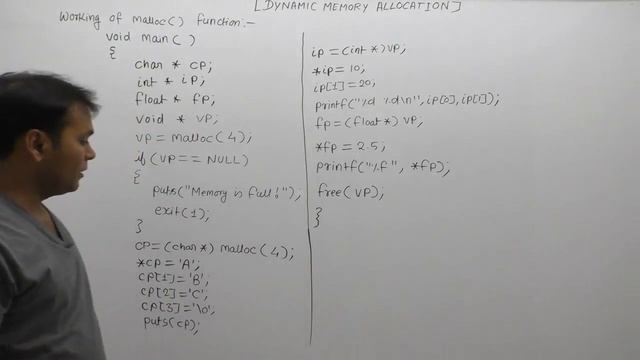 [DYNAMIC MEMORY ALLOCATION]
Working of malloc() function:-
void main()
{
char * cp;
int * ip;
float * fp;
void * vp;
vp = malloc(4);
if (vp == NULL)
{
puts("Memory is full!");
exit(1);
}
cp = (char*) malloc(4);
*cp = 'A';
cp[1] = 'B';
cp[2] = 'C';
cp[3] = '\0';
puts(cp);
ip = (int *) vp;
*ip = 10;
ip[1] = 20;
printf("%d %d\n", ip[0], ip[1]);
fp = (float*) vp;
*fp = 2.5;
printf("%f", *fp);
free(vp);
}